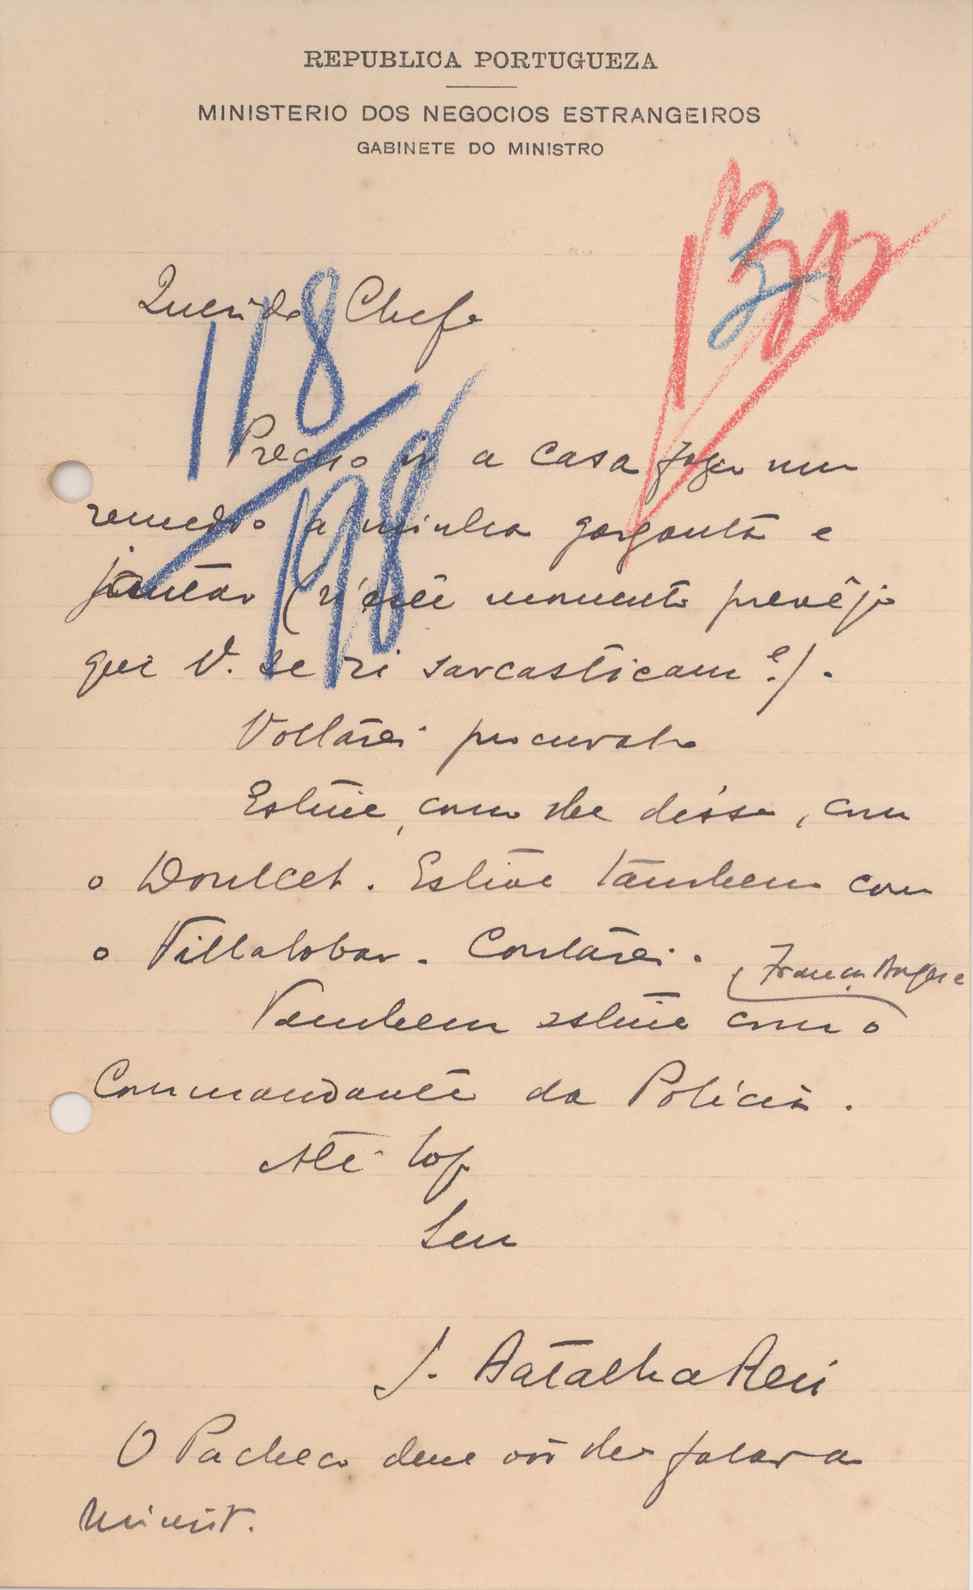 REPUBLICA PORTUGUEZA
MINISTERIO DOS NEGOCIOS ESTRANGEIROS
GABINETE DO MINISTRO
130
Querido Chefe
118
198
Preciso ir a casa fazer um
remedio a minha garganta e
jantar (n'este momento prevêjo
que V. se ri sarcasticam.e).
Voltarei procural-o
Estive, como lhe disse, com
o Doulcet. Estive tambem com
o Villalobar. Contarei.
Tambem estive com o
Commandante da Policia.
Até logo
Seu
J. Batalha Reis
O Pacheco deve vir